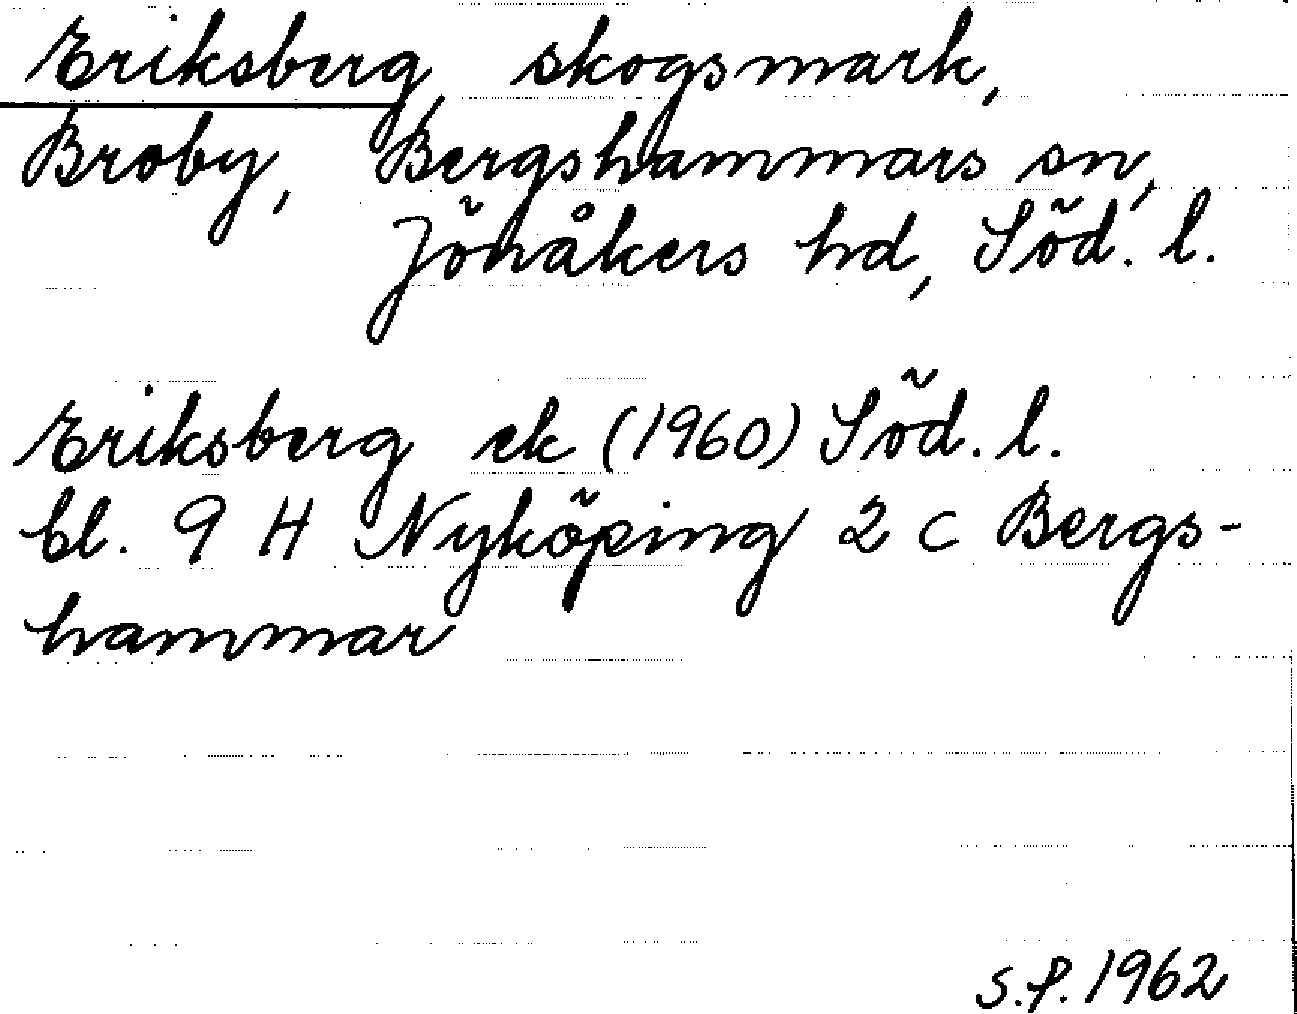 Eriksberg, skogsmark,
Broby, Bergshammars sn,
Jönåkers hd, Söd. l.
Eriksberg ek (1960) Söd. l.
bl. 9 H Nyköping 2 c Bergs-
hammar
S.P. 1962